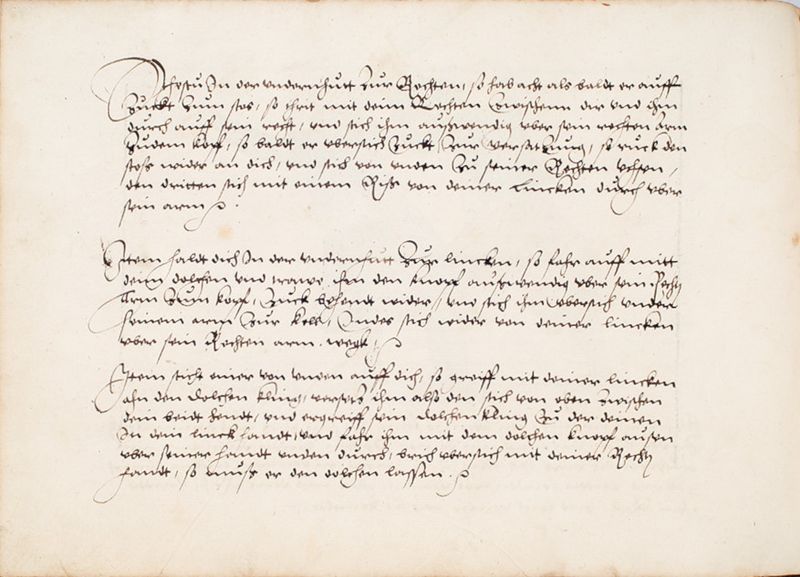 Stestu In der undernhutt Zur Rechten, so hab acht als baldt er auff
Zuckt Zum stos, so thrit mit deim Rechten Zwischenn dir und ihm
durch auff sein recht, und stich ihm außwendig uber sein rechten arm
Zudem kopf, so baldt er ubersich Zuckt Zur versatzung, so ruck den
stoß wider an dich, und stich von unden Zu seiner Rechten uchsen,
den dritten stich mit einem Riß von deiner Lincken durch uber
sein arm.
Item haldt dich In der undernhutt Zur lincken, so fahr auff mitt
deim dolchen und trawe ihm den knopf außwendig uber sein Recht
Arm Zum kopf, Zuck behendt wider, und stich ihm ubersich under
seinem arm Zur kelen, Indes stich wider von deiner lincken
uber sein Rechten arm wegk,
Item sticht einer von unden auff dich, so greiff mit deiner lincken
ahn den dolchen kling, versetz ihm alß den stich von oben Zwischen
dein beidt hendt, und ergreiff sein dolchenkling Zu der deinen
In dein linck handt, und fahr ihm mit dem dolchen knopf aussen
uber seiner handt unden durch, brich ubersich mit deiner Recht
handt, so muß er den dolchen lassen.